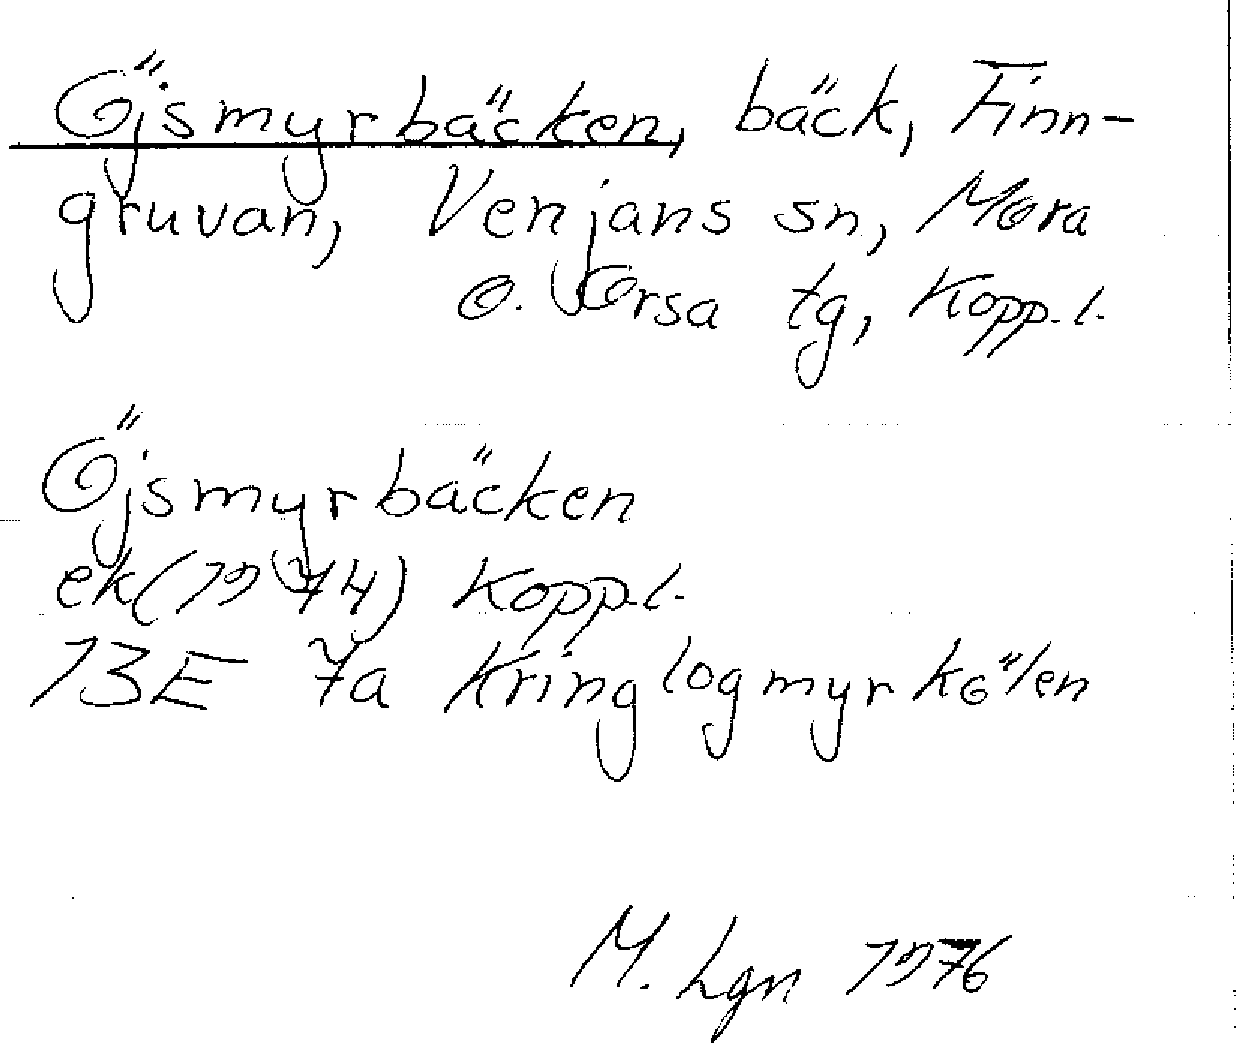 Öjsmyrbäcken, bäck, Finn-
gruvan, Venjans sn, Mora
o. Orsa tg, Kopp.l.
Öjsmyrbäcken
ek(1974) Kopp.l.
13E 7a Kringlogmyrkölen
M. Lgn 1976